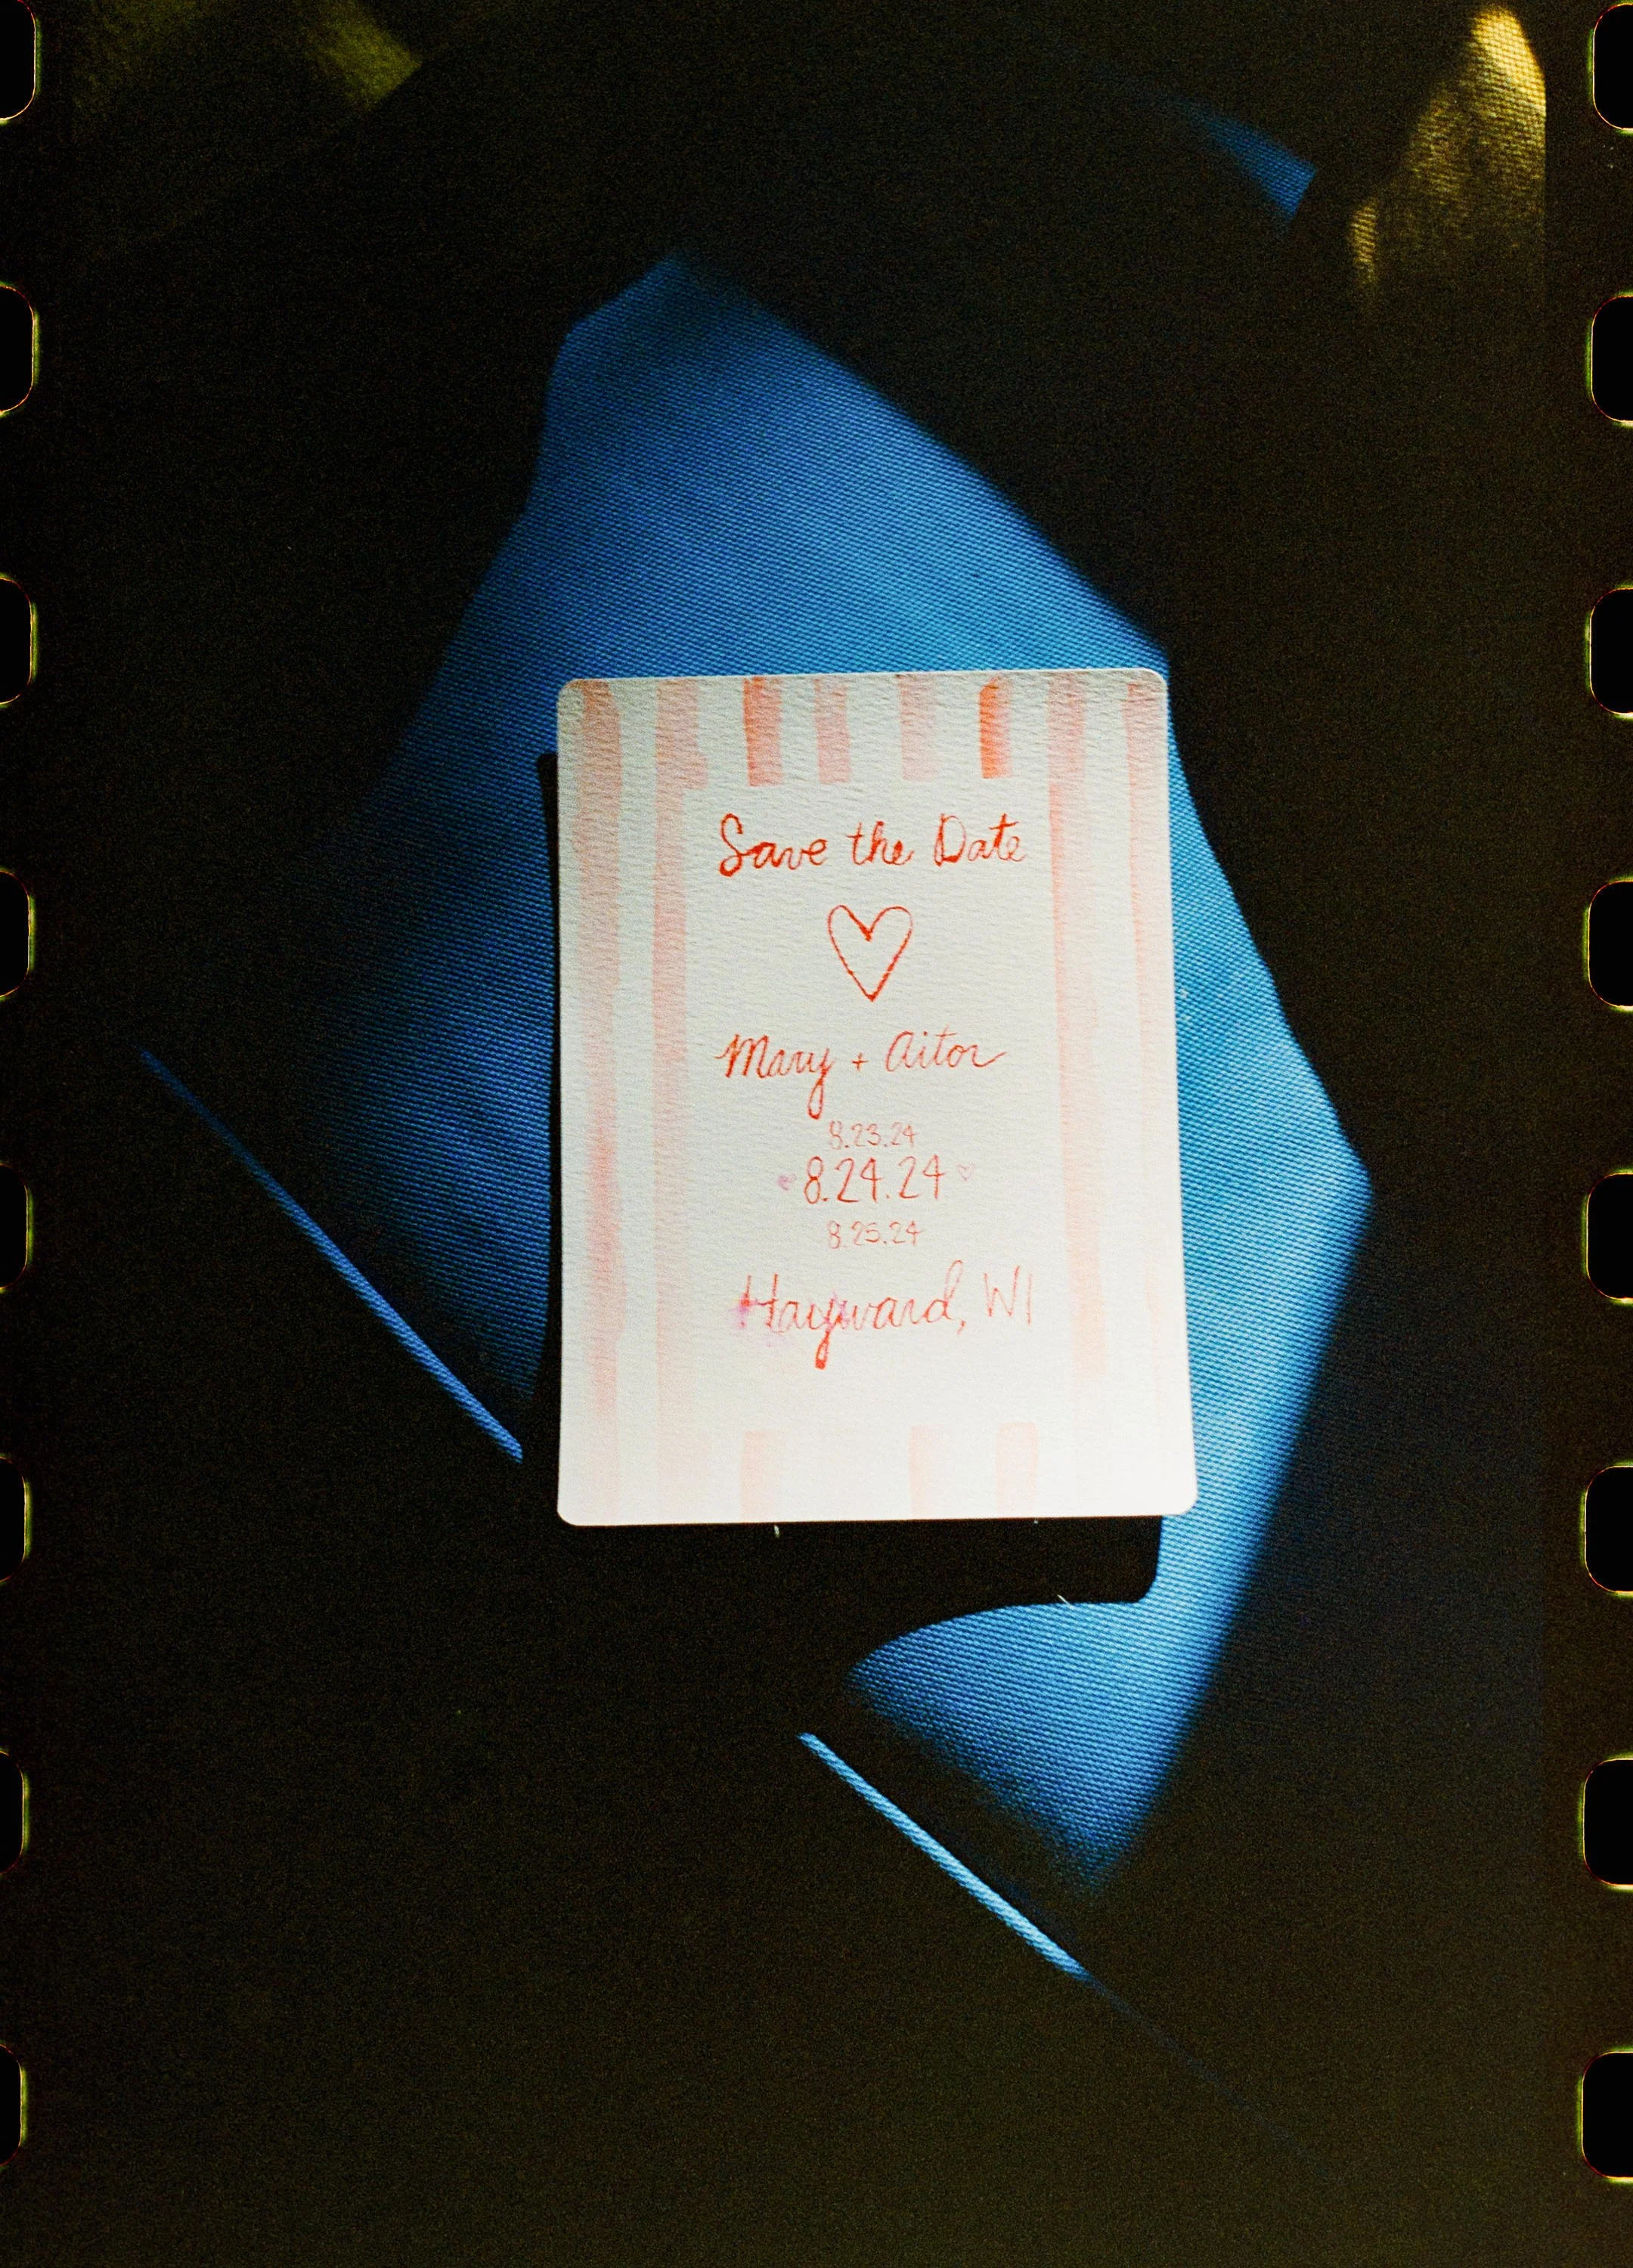 Save the Date
Mary + Aitor
8.23.24
8.24.24
8.25.24
Hayward, WI